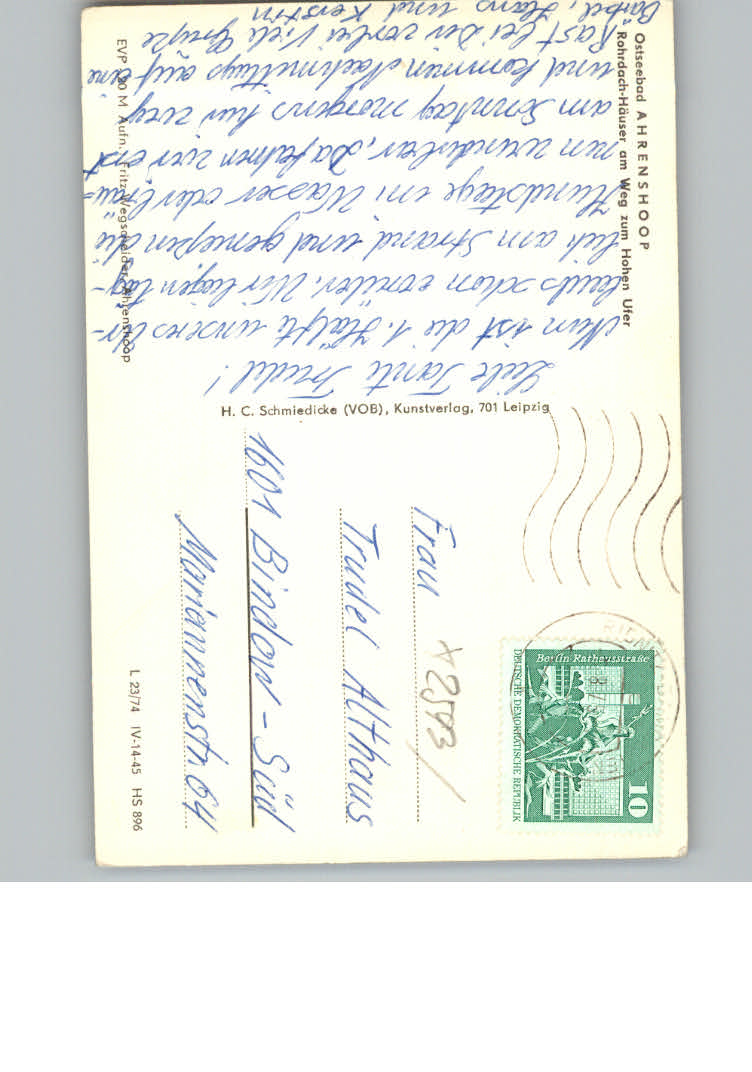 Ostseebad AHRENSHOOP
Rohrdach-Häuser am Weg zum Hohen Ufer
Liebe Tante Trudel!
Nun ist die 1. Hälfte unseres Ur-
laubs schon vorbei. Wir liegen täg-
lich am Strand und genießen die
Hundstage im Wasser oder bräu-
nen wunderbar. Da fahren wir erst
am Sonntag morgens hier weg
und kommen Nachmittags auf eine
Rast bei Dir vorbei. Viele Grüße
Bärbel, Hans und Kerstin
EVP 0,20 M Aufn.: Fritz Wegscheider, Ahrenshoop
H. C. Schmiedicke (VOB), Kunstverlag, 701 Leipzig
Berlin-Rathausstraße
DEUTSCHE DEMOKRATISCHE REPUBLIK
10
+2593/
Frau
Trudel Althaus
1601 Bindow-Süd
Mariannenstr. 64
L 23/74 IV-14-45 HS 896